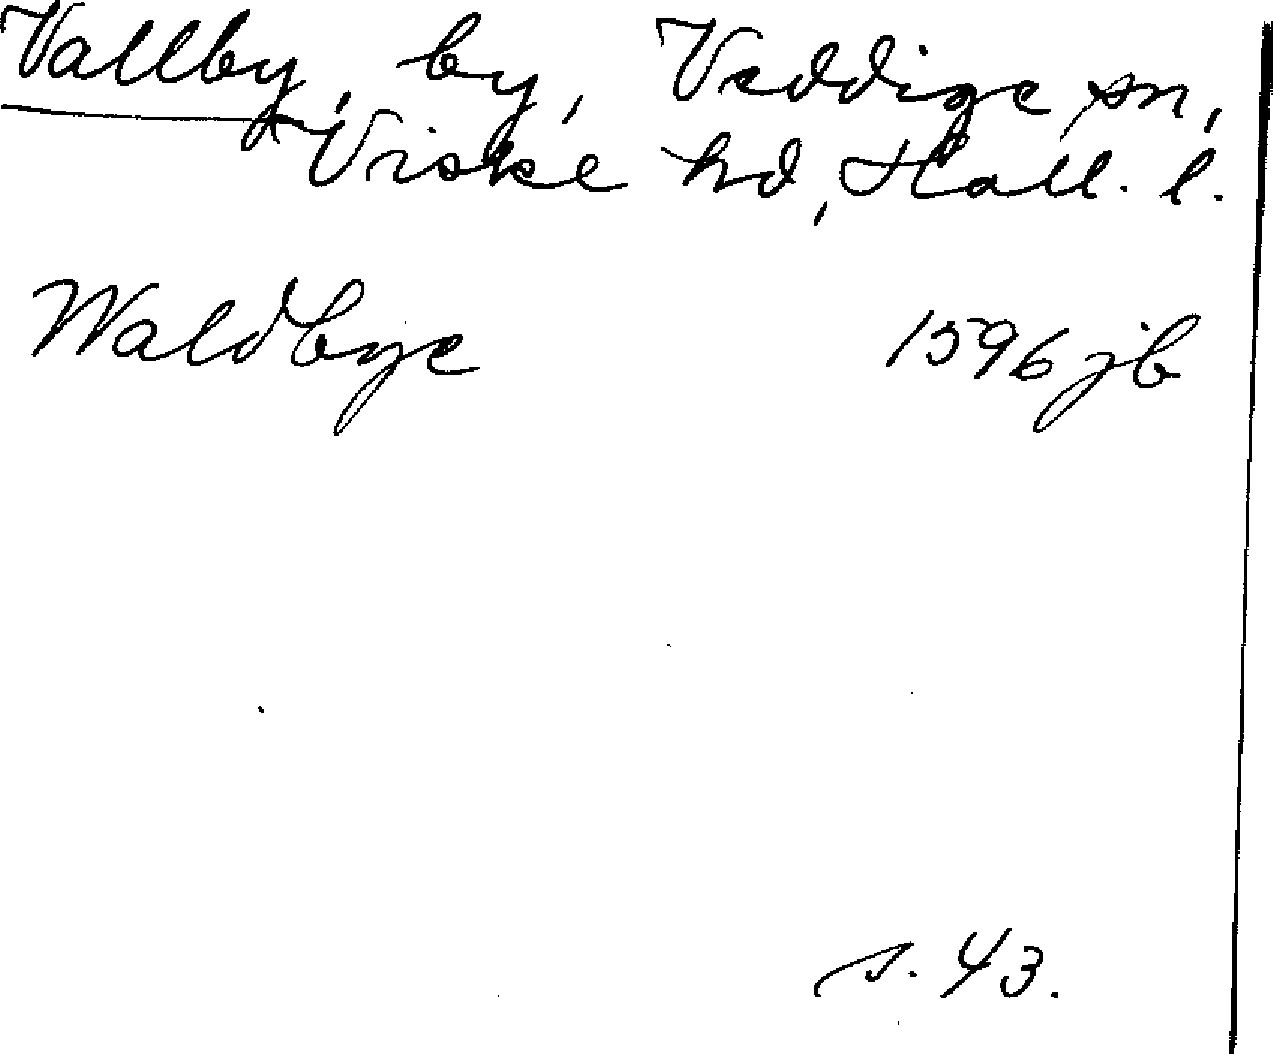 Vallby, by, Veddige sn,
Viske hd, Hall. l.
Waldbye 1596 jb
s. 43.